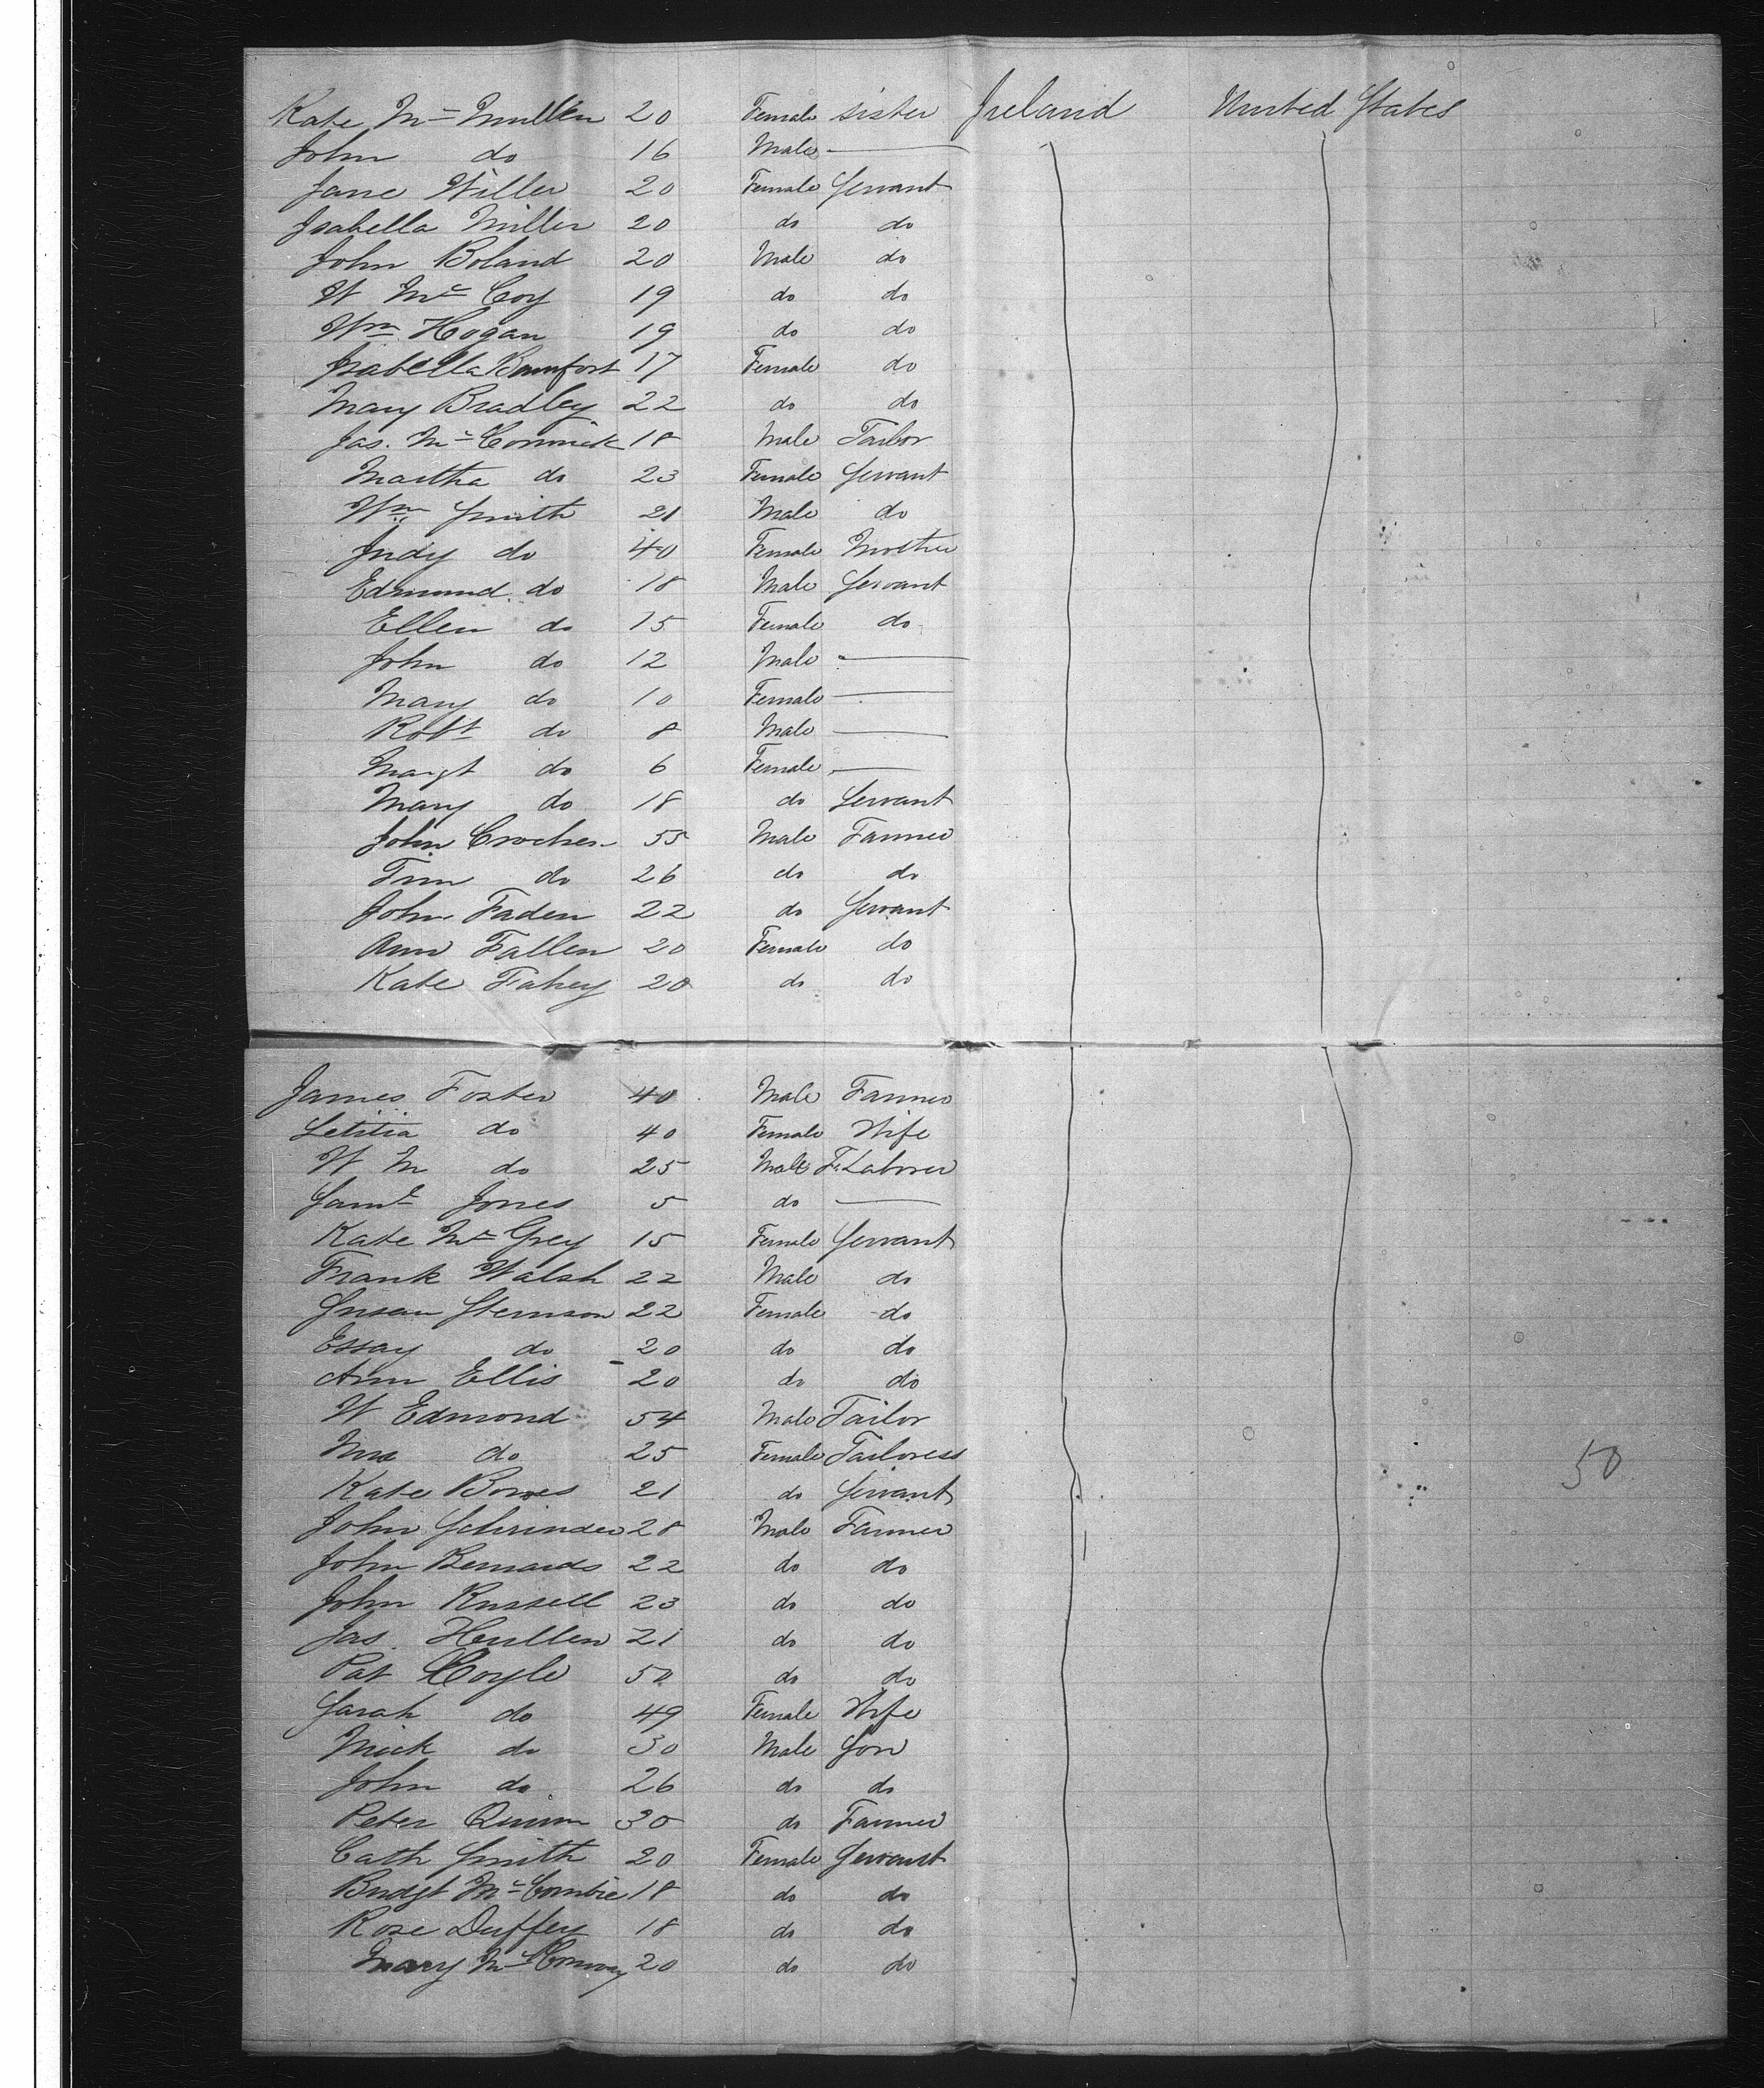 Kate Mc Mullen 20 Female sister Ireland United States
John do 16 Male
Jane Willer 20 Female Servant
Isabella Miller 20 do do
John Boland 20 Male do
W Mc Coy 19 do do
Wm Hogan 19 do do
Isabella Bamfort 17 Female do
Mary Bradley 22 do do
Jas. Mc Cormick 18 Male Tailor
Martha do 23 Female Servant
Wm Smith 21 Male do
Judy do 40 Female Mother
Edmund do 18 Male Servant
Ellen do 15 Female do
John do 12 Male
Mary do 10 Female
Robt do 8 Male
Margt do 6 Female
Mary do 18 do Servant
John Crocher 55 Male Farmer
Tim do 26 do do
John Faden 22 do Servant
Ann Fallen 20 Female do
Kate Fahey 20 do do
James Foster 40 Male Farmer
Letitia do 40 Female Wife
W M do 25 Male F. Laborer
Saml Jones 5 do
Kate Mc Grey 15 Female Servant
Frank Walsh 22 Male do
Susan Stemson 22 Female do
Essay do 20 do do
Ann Ellis 20 do do
W Edmond 54 Male Tailor
Mrs do 25 Female Tailoress 50
Kate Bowes 21 do Servant
John Schrinder 28 Male Farmer
John Bernards 22 do do
John Russell 23 do do
Jas. Hullen 21 do do
Pat Coyle 50 do do
Sarah do 49 Female Wife
Mick do 30 Male Son
John do 26 do do
Peter Quinn 30 do Farmer
Cath Smith 20 Female Servant
Bridgt Mc Combie 18 do do
Rose Duffey 18 do do
Mary Mc Conway 20 do do